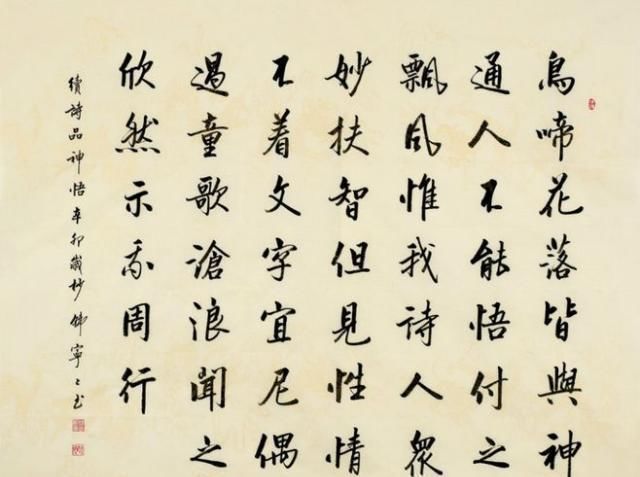 鳥啼花落皆與神
通人不能悟付之
飄風惟我詩人眾
妙扶智但見性情
不着文字宜尼偶
過童歌滄浪聞之
欣然示我周行
續詩品神悟辛卯歲杪寧